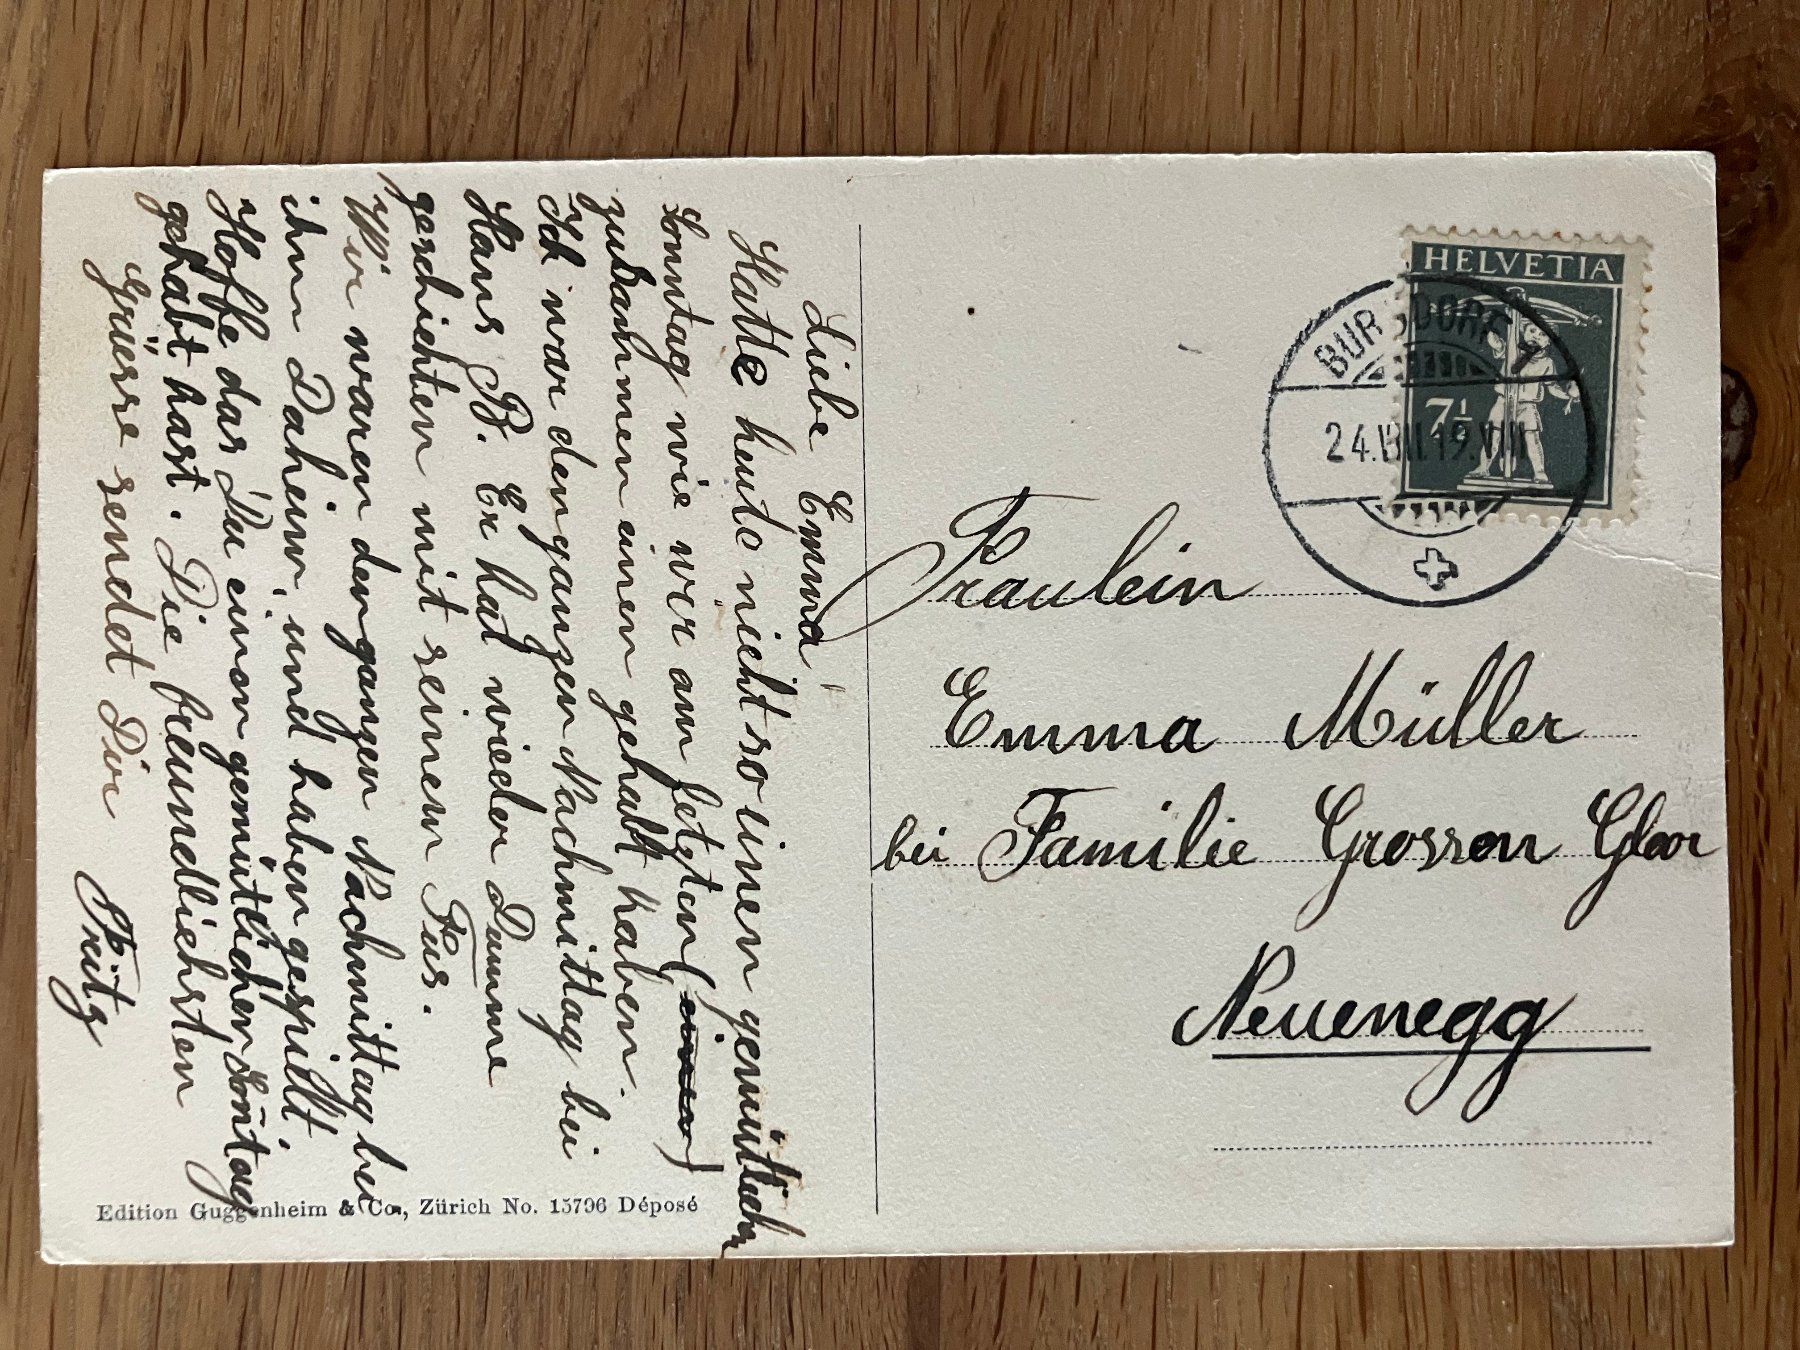 Liebe Emma
Hatte heute nicht so einen gemütlichen
Sonntag wie wir am letzten (einen)
zusammen einen gehabt haben.
Ich war den ganzen Nachmittag bei
Hans B. Er hat wieder Dumme
geschichten mit seinem Fus.
Wir waren den ganzen Nachmittag bei
ihm Daheim, und haben gespillt.
Hoffe das Du einen gemütlichen Sontag
gehabt hast. Die freundlichsten
Grüsse sendet Dir
Fritz
Edition Guggenheim & Co., Zürich No. 15796 Déposé
HELVETIA
7½
BURGDORF 1
24.VIII.19.VIII
Fräulein
Emma Müller
bei Familie Grossen
Neuenegg